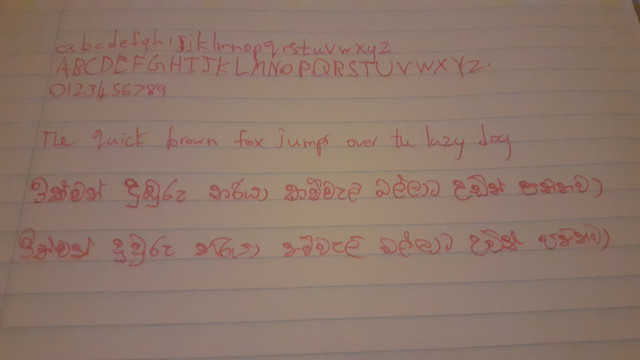 abcdefghijklmnopqrstuvwxyz
ABCDEFGHIJKLMNOPQRSTUVWXYZ.
0123456789
The quick brown fox jumps over the lazy dog
ඉක්මන් දුඹුරු නරියා කම්මැලි බල්ලාට උඩින් පනිනවා
ඉක්මන් දුඹුරු නරියා කම්මැලි බල්ලාට උඩින් පනිනවා